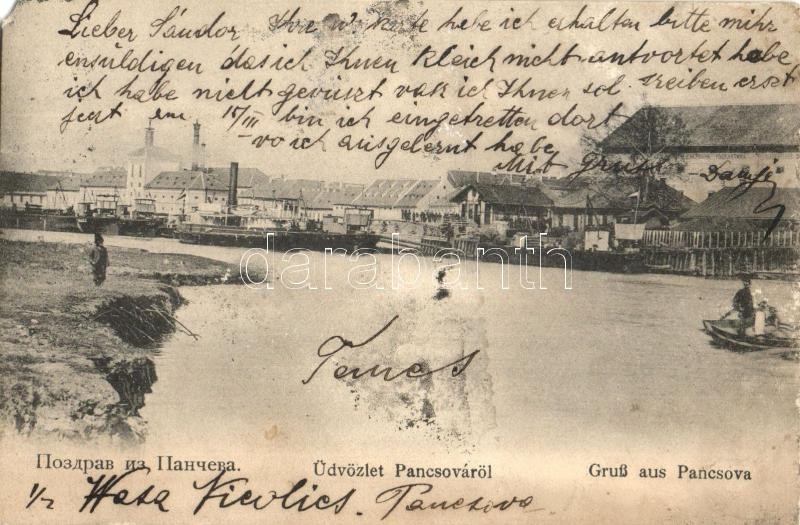 Lieber Sándor Ihre habe ich erhalten bitte mihr
ensüldigen das ich Ihnen kleich nicht antvortet habe
ich habe nicht gevüszt vas ich Ihnen sol. erszt
jeczt am 15/III bin ich eingetretten dort
vo ich ausgelernt habe
Mit Gruss
darabanth
Temes
Поздрав из Панчева. Üdvözlet Pancsováról Gruß aus Pancsova
1/2 Wasa Nicolics. Pancsova.